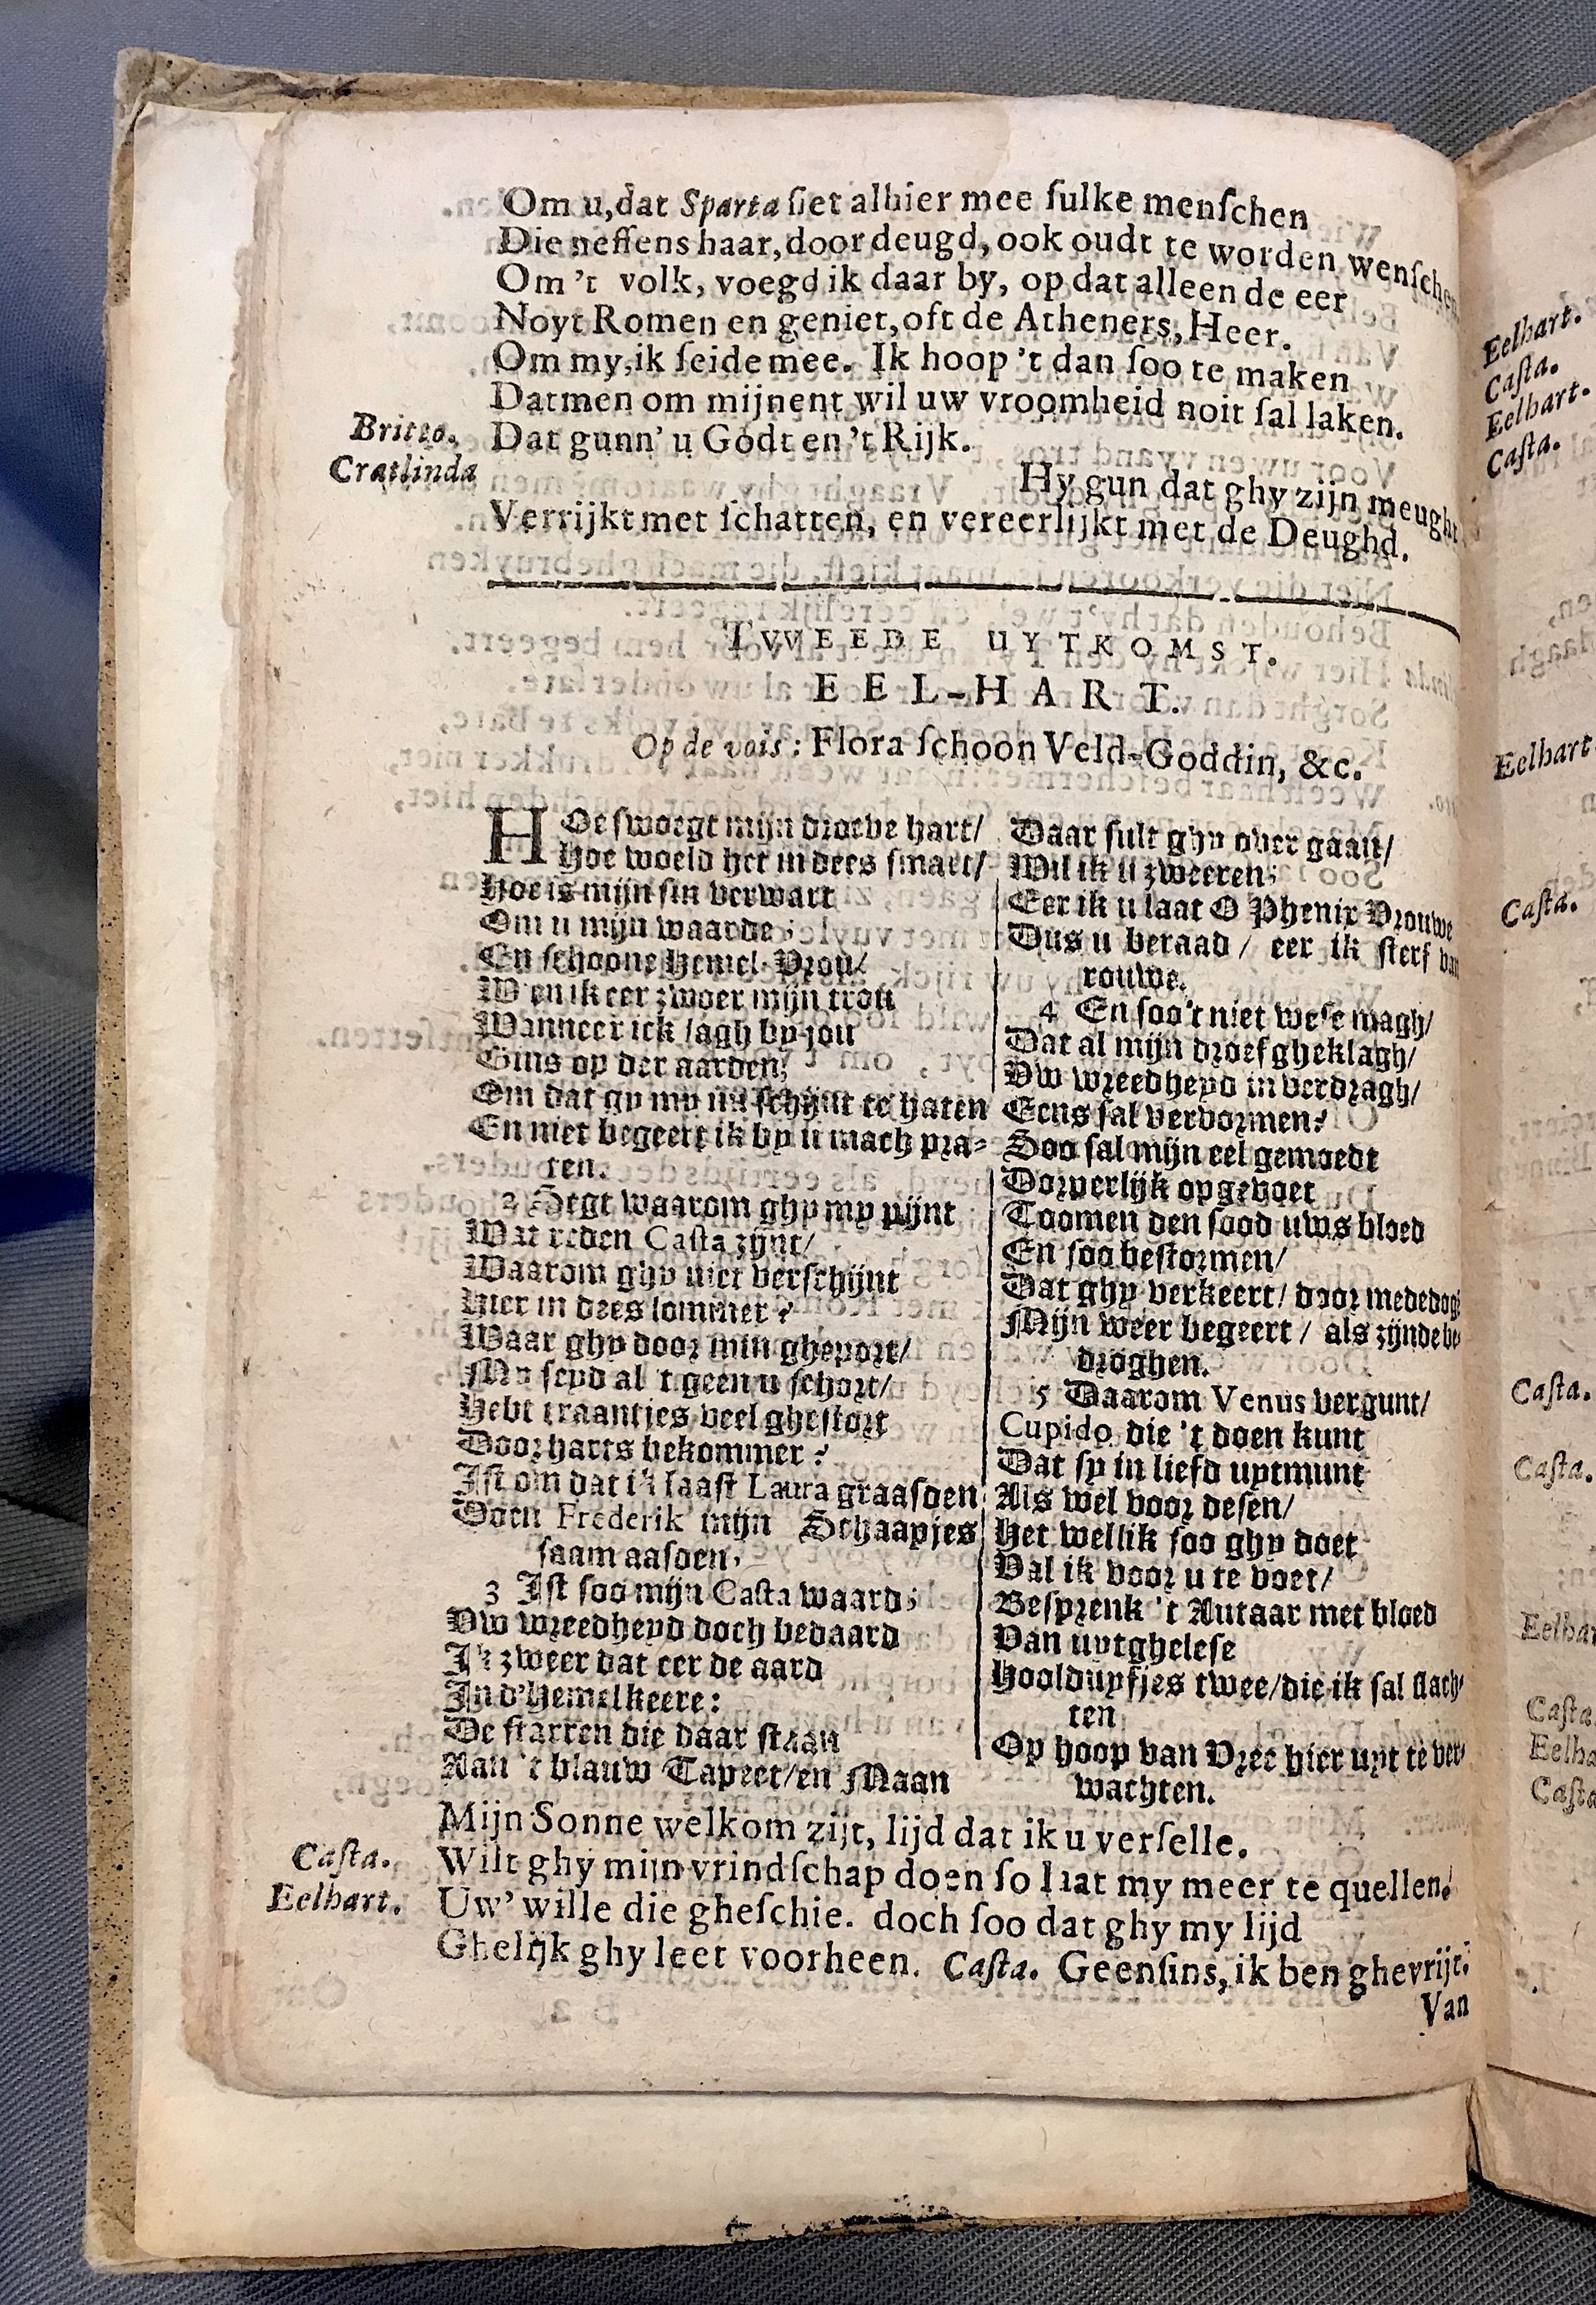 Om u, dat Sparta siet alhier mee ſulke menſchen
Die neffens haar, door deugd, ook oudt te worden wenſchen
Om 't volk, voegd ik daar by, op dat alleen de eer
Noyt Romen en geniet, oft de Atheners, Heer.
Om my, ik ſeide mee. Ik hoop 't dan ſoo te maken
Datmen om mijnent wil uw vroomheid noit ſal laken.
Britto. Dat gunn' u Godt en 't Rijk.
Cratlinda Hy gun dat ghy zijn meught
Verrijkt met ſchatten, en vereerlijkt met de Deughd.
TVVEEDE UYTKOMST.
EEL-HART.
Op de vois: Flora ſchoon Veld-Goddin, &c.
HOe ſwoegt mijn droeve hart/
Hoe woeld het in dees ſmart/
Hoe is mijn ſin verwart
Om u mijn waarde;
En ſchoone Hemel-Vrou/
Wien ik eer zwoer mijn trou
Wanneer ick lagh by jou
Gins op der aarden;
Om dat gy my nu ſchijnt te haten
En niet begeert ik by u mach pra-
ten.
2 Segt waarom ghy my pijnt
Wat reden Caſta zijnt/
Waarom ghy niet verſchijnt
Hier in dees lommer?
Waar ghy door min gheport/
My ſeyd al 't geen u ſchort/
Hebt traantjes veel gheſtort
Door harts bekommer?
Iſt om dat ik laaſt Laura graaſden
Doen Frederik mijn Schaapjes
ſaam aaſden,
3 Iſt ſoo mijn Caſta waard;
Vw wreedheyd doch bedaard
Ik zweer dat eer de aard
In d'Hemel keere:
De ſtarren die daar ſtaan
Aan 't blauw Tapeet/en Maan
Daar ſult ghy over gaan/
Wil ik u zweeren;
Eer ik u laat O Phenix Vrouwe
Dus u beraad / eer ik ſterf van
rouwe.
4 En ſoo't niet weſe magh/
Dat al mijn droef gheklagh/
Vw wreedheyd in verdragh/
Eens ſal vervormen?
Soo ſal mijn eel gemoedt
Dorperlijk opgevoet
Toomen den ſood uws bloed
En ſoo beſtormen/
Dat ghy verkeert/ door mededog
Mijn weer begeert / als zijnde be-
droghen.
5 Daarom Venus vergunt/
Cupido die 't doen kunt
Dat ſy in liefd uytmunt
Als wel voor deſen/
Het wellik ſoo ghy doet
Val ik voor u te voet/
Beſprenk 't Autaar met bloed
Van uytgheleſe
Hooldupfjes twee/die ik ſal ſlach-
ten
Op hoop van Vree hier uyt te ver-
wachten.
Mijn Sonne welkom zijt, lijd dat ik u verſelle.
Caſta. Wilt ghy mijn vrindſchap doen ſo laat my meer te quellen.
Eelhart. Uw' wille die gheſchie. doch ſoo dat ghy my lijd
Ghelijk ghy leet voorheen. Caſta. Geenſins, ik ben ghevrijt.
Van
Eelhart.
Caſta.
Eelhart.
Caſta.
Eelhart
Caſta.
Caſta.
Caſta.
Eelhar
Caſta.
Eelha
Caſta